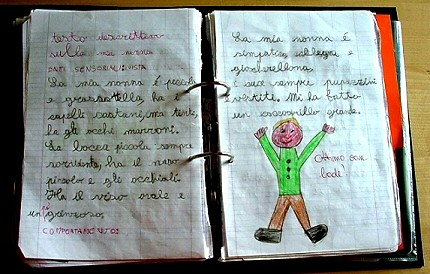 testo descrittivo
sulla mia nonna
DATI SENSORIALI: VISTA
La mia nonna è piccola
e grassottella, ha i
capelli castani, ma tinti,
ha gli occhi marroni.
La bocca piccola sempre
sorridente, ha il naso
piccolo e gli occhiali.
Ha il viso ovale e
COMPORTAMENTO:
La mia nonna è
simpatica, allegra e
giocherellona,
i suoi sempre pupazzini
vestiti. Mi ha fatto
un coccodrillo grande.
Ottimo con
lode!